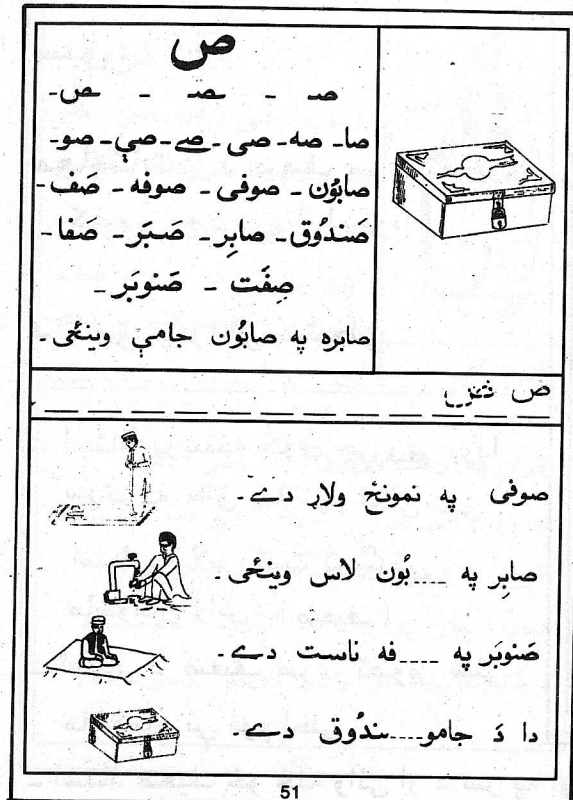 ص
صـ - ـصـ - ـص-
صا- صه- صی- صے- صې- صو-
صابوُن- صوفی- صوفه- صف-
صَندُوق- صابِر- صَبَر- صَفا-
صِفَت - صَنوبَر-
صابره په صابُون جامې وینځی-
ص
صوفی په نمونځ ولاړ دے-
صابِر په ----بُون لاس وینځی-
صَنوبَر په ----فه ناست دے-
دا دَ جامو----ندُوق دے-
51